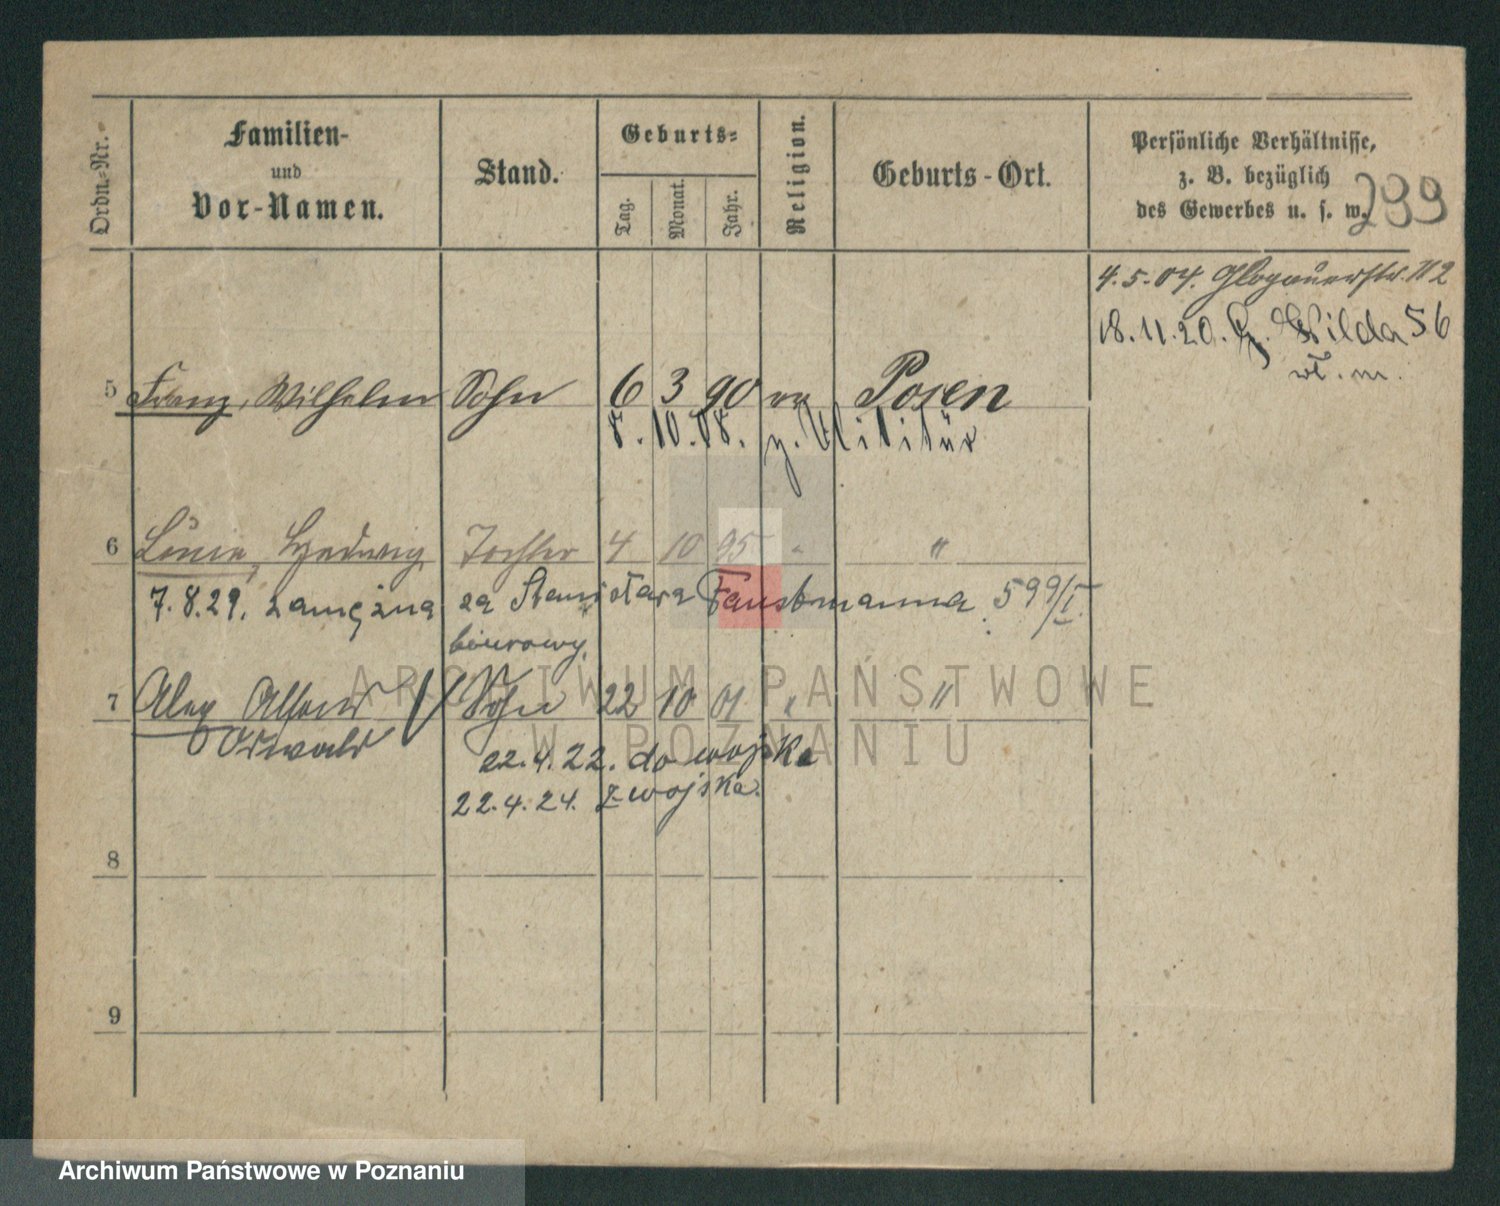 Ordn.-Nr.
Familien-
und
Vor-Namen.
Stand.
Geburts-
Tag.
Monat.
Jahr.
Religion.
Geburts-Ort.
Persönliche Verhältnisse,
z. B. bezüglich
des Gewerbes u. s. w.
299
4.5.04. Glogauerstr. 112
18.11.20. G. Wilda 56
wł. m.
5 Franz, Wilhelm Sohn 6 3 90 Posen
8.10.08. z. Militär
6 Hedwig Tochter 4 10 95 " "
7.8.29. zamężna za Stanisława Faustmanna 599/I.
biurowy.
7 Alex Alfons Sohn 22 10 01 " "
Oswald
22.4.22. do wojska
22.4.24. z wojska.
8
9
ARCHIWUM PAŃSTWOWE
W POZNANIU
Archiwum Państwowe w Poznaniu